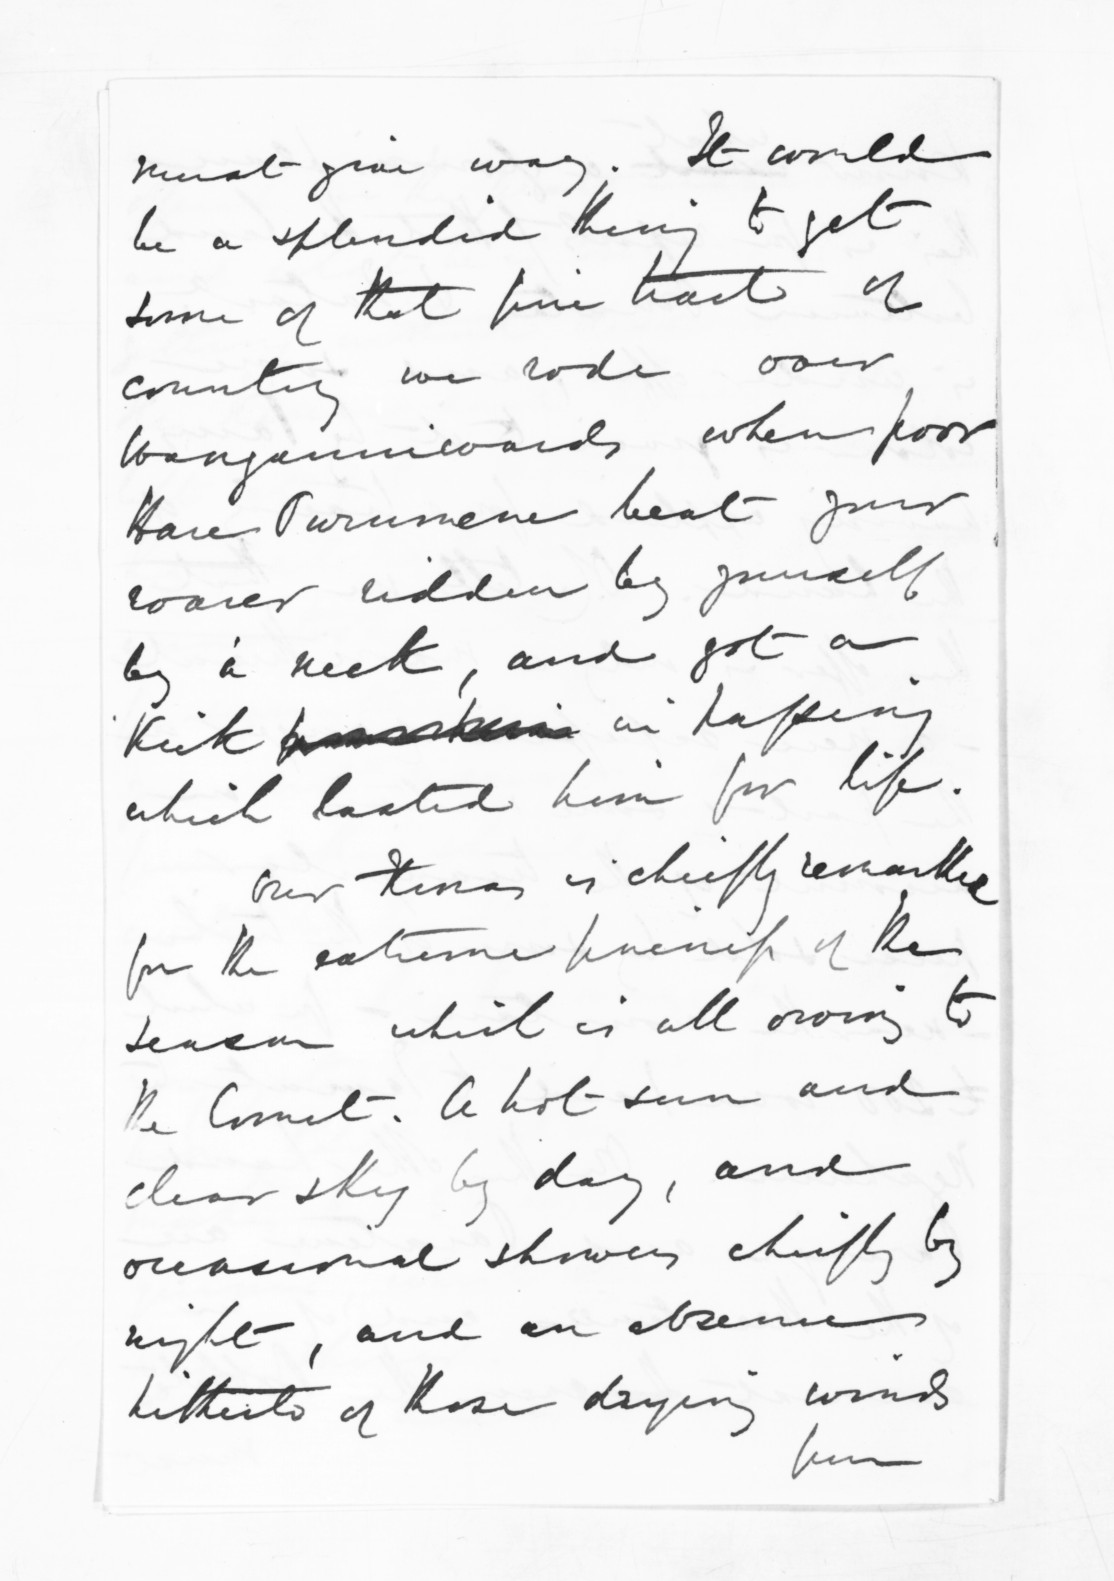 must give way. It would
be a splendid thing to get
some of that fine tract of
country we rode over
Wanganuiwards when poor
Hare Purumene beat your
roarer ridden by yourself
by a neck, and got a
Kick in passing
which lasted him for life.
Our Xmas is chiefly remarkble
for the extreme fineness of the
season which is all owing to
the Comet. A hot sun and
clear sky by day, and
occasional showers chiefly by
night, and an absence
hitherto of those drying winds
from